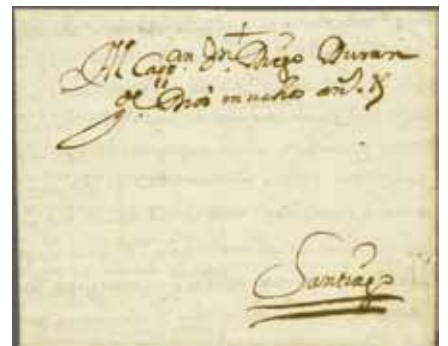 Al Cap.an Dn. Diego Duran
ge. Dios muchos añs.
Santiago